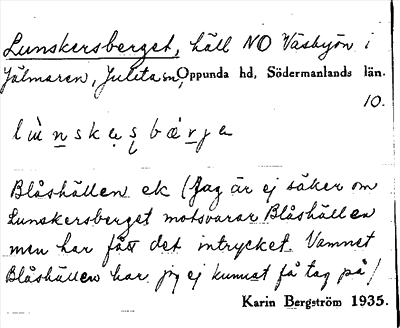 Lunskersberget, häll NO Väsbyön i
Jälmaren, Julita sn, Oppunda hd, Södermanlands län.
10.
Blåshällen ek (Jag är ej säker om
Lunskersberget motsvarar Blåshällen
men har fått det intrycket. Namnet
Blåshällen har jag ej kunnat få tag på)
Karin Bergström 1935.